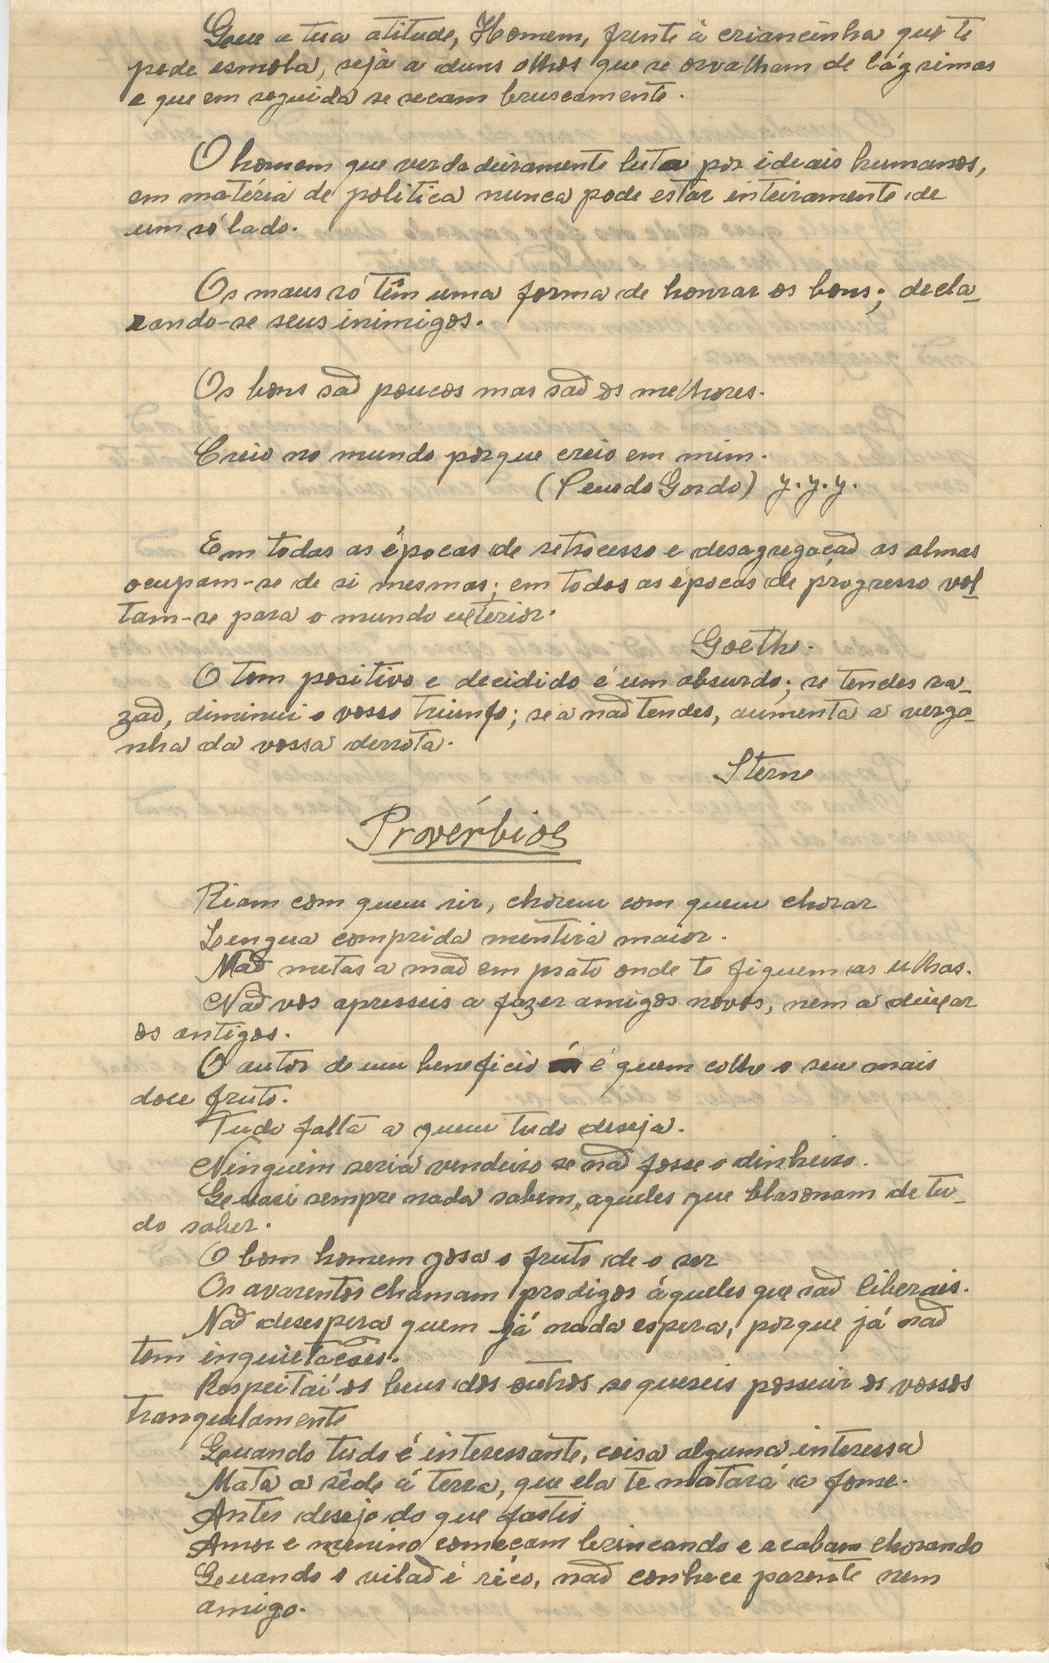 Que a tua atitude, Homem, frente à criancinha que te
pede esmola, seja a duns olhos que se orvalham de lágrimas
e que em seguida se secam bruscamente.
O homem que verdadeiramente luta por ideais humanos,
em matéria de política nunca pode estar inteiramente de
um só lado.
Os maus só têm uma forma de honrar os bons; decla_
rando-se seus inimigos.
Os bons são poucos mas são os melhores.
Creio no mundo porque creio em mim.
(Penedo Gordo) y.y.y.
Em todas as épocas de retrocesso e desagregação as almas
ocupam-se de si mesmas; em todas as épocas de progresso vol_
tam-se para o mundo exterior.
Goethe.
O tom positivo e decidido é um absurdo; se tendes ra_
zão, diminui o vosso triunfo; se a não tendes, aumenta a vergo_
nha da vossa derrota.
Sterne
Provérbios
Riam com quem rir, chorem com quem chorar
Lengua comprida mentira maior.
Não metas a mão em prato onde te fiquem as unhas.
Não vos apresseis a fazer amigos novos, nem a deixar
os antigos.
O autor de um beneficio é quem colhe o seu mais
doce fruto.
Tudo falta a quem tudo deseja.
Ninguém seria vendeiro se não fosse o dinheiro.
Quasi sempre nada sabem, aqueles que blasonam de tu_
do saber.
O bom homem gosa o fruto de o ser
Os avarentos chamam prodigos áqueles que são liberais.
Não desespera quem já nada espera, porque já não
tem inquietações.
Respeitai os bens dos outros se quereis possuir os vossos
tranquilamente
Quando tudo é interessante, coisa alguma interessa
Mata a sêde á terra, que ela te matará a fome.
Antes desejo do que fastio
Amor e menino começam brincando e acabam chorando
Quando o vilão é rico, não conhece parente nem
amigo.